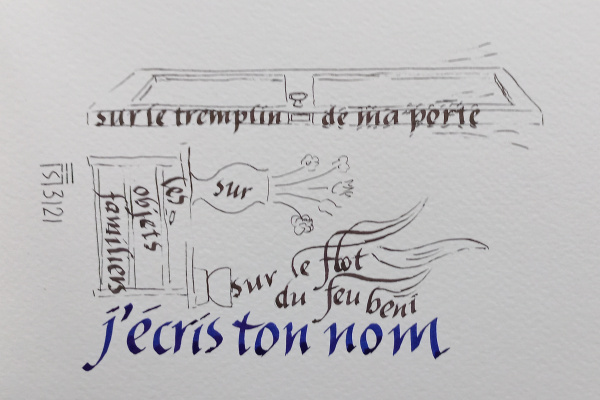 sur le tremplin de ma porte
sur
les
objets
familiers
sur le flot
du feu beni
j'écris ton nom